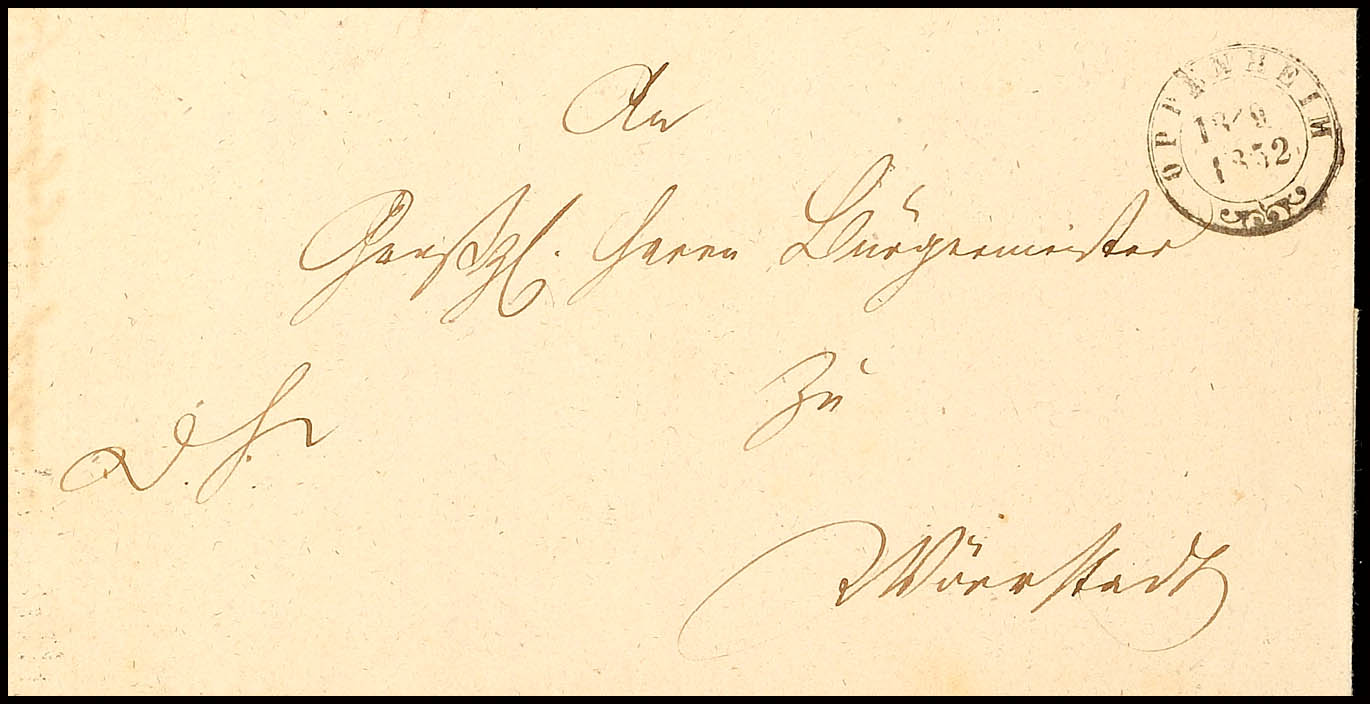 OPPENHEIM
18/9
1852
An
Großhzl. Herrn Bürgermeister
zu
D. S.
Wörrstadt